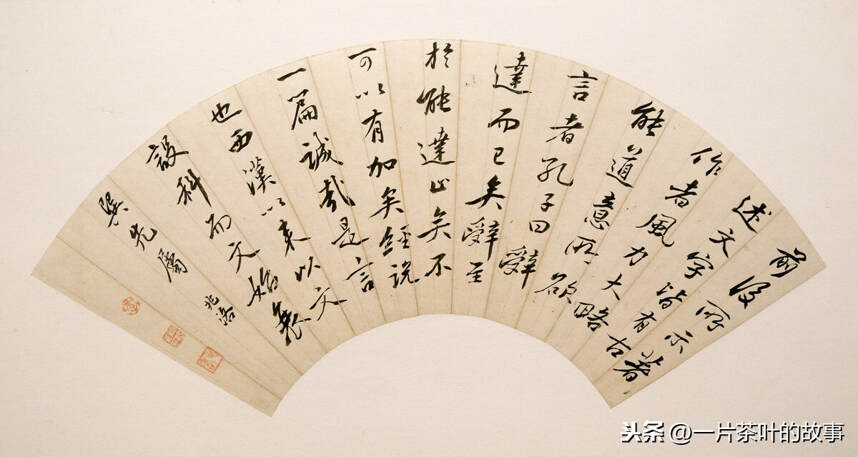 前後所示著
述文字皆有古
作者風力大略
能道意所欲
言者孔子曰辭
達而已矣辭至
於能達止矣不
可以有加矣經說
一篇誠哉是言
也西漢以來以文
設科而文始衰
巽先屬 兆洛
头条 @一片茶叶的故事